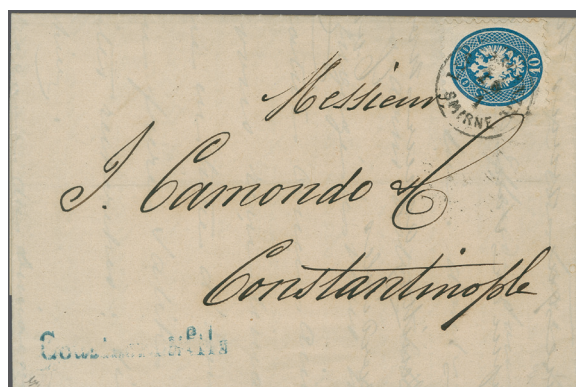 10
SMIRNE
Messieur
I. Camondo & C
Constantinople